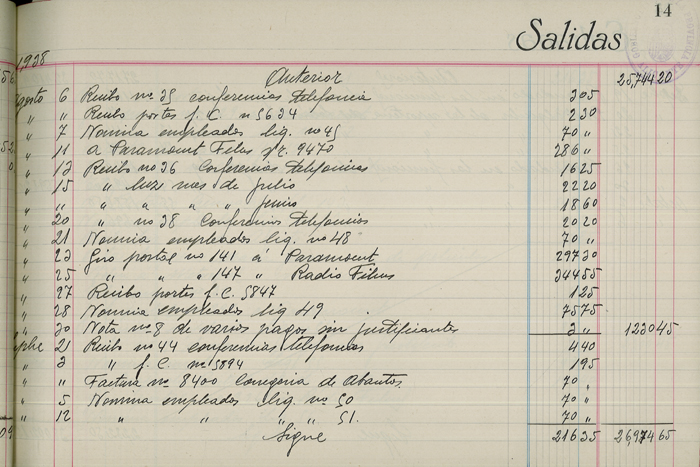 14
Salidas
1,938
Anterior 25,744 20
Agosto 6 Recibo nº 35 conferencias telefonia 3 05
" " Recibo portes f. C. n 5634 2 30
" 7 Nomina empleados liq. nº 45 70 "
" 11 a Paramount Films 9470 286 "
" 13 Recibo nº 36 Conferencias telefonicas 16 25
" 15 " luz mes de Julio 22 20
" " " " " " Junio 18 60
" 20 " nº 38 Conferencias telefonicas 20 20
" 21 Nomina empleados liq. nº 48 70 "
" 23 Giro postal nº 141 á Paramount 297 30
" 25 " " " 147 " Radio Films 344 55
" 27 Recibo portes f. C. 5847 1 25
" 28 Nomina empleados liq 49 75 75
" 30 Nota nº 8 de varios pagos sin justificantes 3 " 1230 45
21 Recibo nº 44 conferencias telefonicas 4 40
" 3 " f. C. nº 5894 1 95
" " Factura nº 8400 de Abantos 70 "
" 5 Nomina empleados liq. nº 50 70 "
" 12 " " " " 51. 70 "
Sigue 216 35 26,974 65